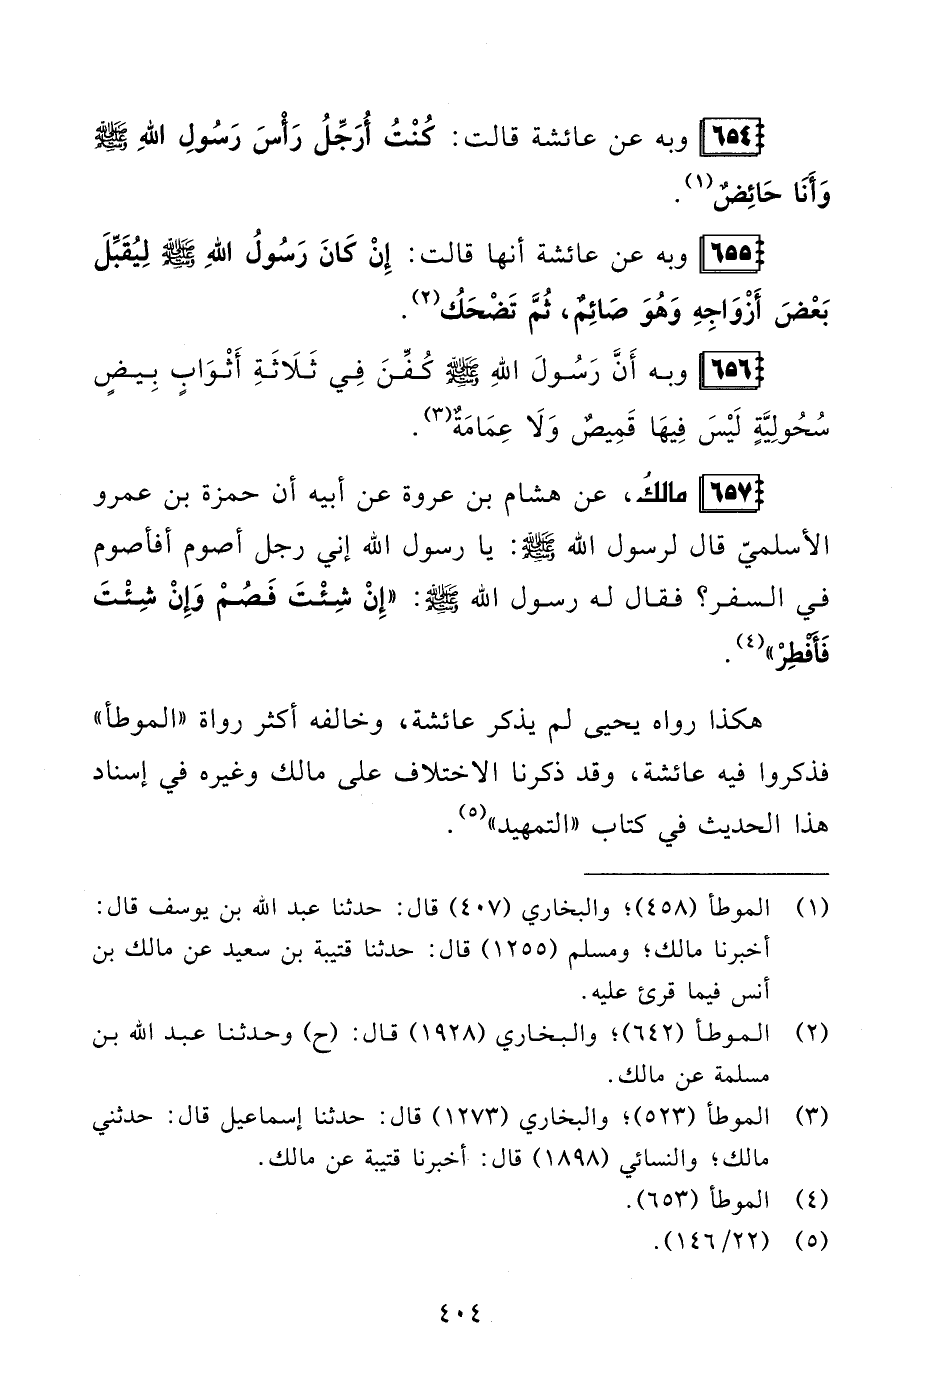 ٦٥٤ وبه عن عائشة قالت: كُنْتُ أُرَجِّلُ رَأْسَ رَسُولِ اللهِ ﷺ
وَأَنَا حَائِضٌ(١).
٦٥٥ وبه عن عائشة أنها قالت: إِنْ كَانَ رَسُولُ اللهِ ﷺ لِيُقَبِّلَ
بَعْضَ أَزْوَاجِهِ وَهُوَ صَائِمٌ، ثُمَّ تَضْحَكُ(٢).
٦٥٦ وبه أَنَّ رَسُولَ اللهِ ﷺ كُفِّنَ فِي ثَلَاثَةِ أَثْوَابٍ بِيضٍ
سُحُولِيَّةٍ لَيْسَ فِيهَا قَمِيصٌ وَلَا عِمَامَةٌ(٣).
٦٥٧ مالكُ، عن هشام بن عروة عن أبيه أن حمزة بن عمرو
الأسلميّ قال لرسول الله ﷺ: يا رسول الله إني رجل أصوم أفأصوم
في السفر؟ فقال له رسول الله ﷺ: «إِنْ شِئْتَ فَصُمْ وَإِنْ شِئْتَ
فَأَفْطِرْ»(٤).
هكذا رواه يحيى لم يذكر عائشة، وخالفه أكثر رواة «الموطأ»
فذكروا فيه عائشة، وقد ذكرنا الاختلاف على مالك وغيره في إسناد
هذا الحديث في كتاب «التمهيد»(٥).
(١) الموطأ (٤٥٨)؛ والبخاري (٤٠٧) قال: حدثنا عبد الله بن يوسف قال:
أخبرنا مالك؛ ومسلم (١٢٥٥) قال: حدثنا قتيبة بن سعيد عن مالك بن
أنس فيما قرئ عليه.
(٢) الموطأ (٦٤٢)؛ والبخاري (١٩٢٨) قال: (ح) وحدثنا عبد الله بن
مسلمة عن مالك.
(٣) الموطأ (٥٢٣)؛ والبخاري (١٢٧٣) قال: حدثنا إسماعيل قال: حدثني
مالك؛ والنسائي (١٨٩٨) قال: أخبرنا قتيبة عن مالك.
(٤) الموطأ (٦٥٣).
(٥) (١٤٦/٢٢).
٤٠٤